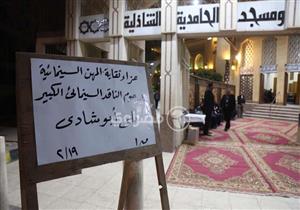 ومسجد
الحامدية الشاذلية
عزاء نقابة المهن السينمائية
الناقد السينمائى الكبير
أبو شادى
٢/١٩